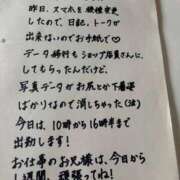 昨日、スマホを機種変更
したので、日記、トークが
出来ないのでお手紙で
データ移行もショップ店員さんに、
してもらったんだけど、
写真データがお尻とか下着姿
ばかりなので消しちゃった(泣)
今日は、10時から16時半まで
出勤します!
お仕事のお兄様は、今日から
1週間、頑張ってね!